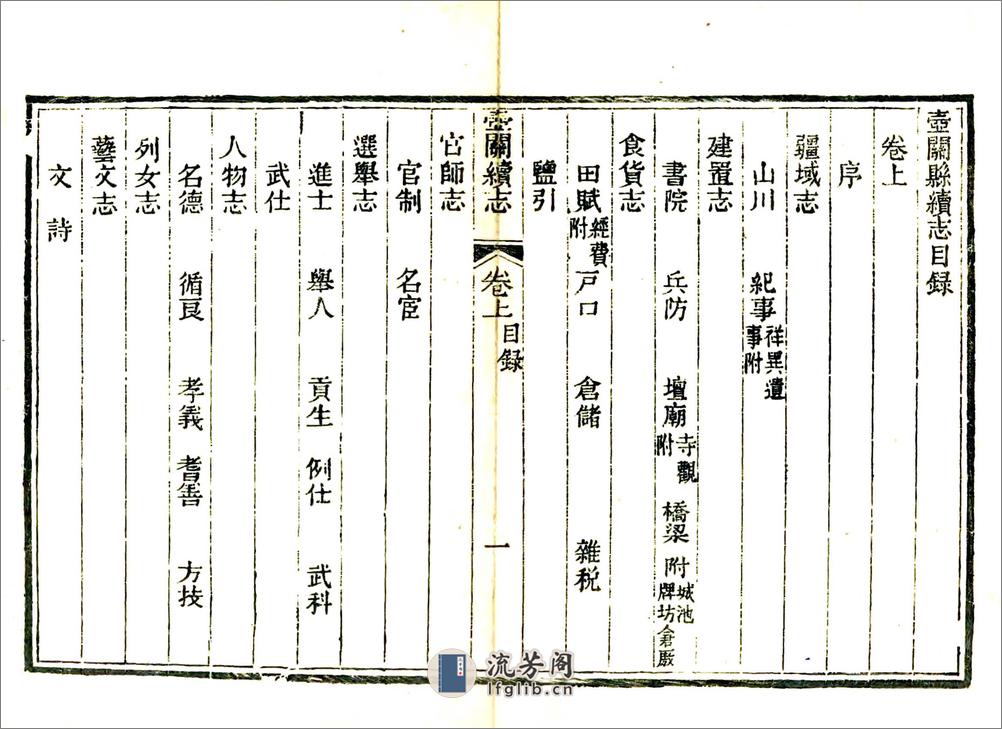 壺關縣續志目録
卷上
序
疆域志
山川 紀事祥異遺事附
建置志
書院 兵防 壇廟寺觀附 橋梁附城池牌坊倉厫
食貨志
田賦經費附 戸口 倉儲 雜税
鹽引
壺關續志 卷上 目録 一
官師志
官制 名宦
選舉志
進士 舉人 貢生 例仕 武科
武仕
人物志
名德 循良 孝義 耆善 方技
列女志
藝文志
文 詩
流芳阁
lfglib.cn